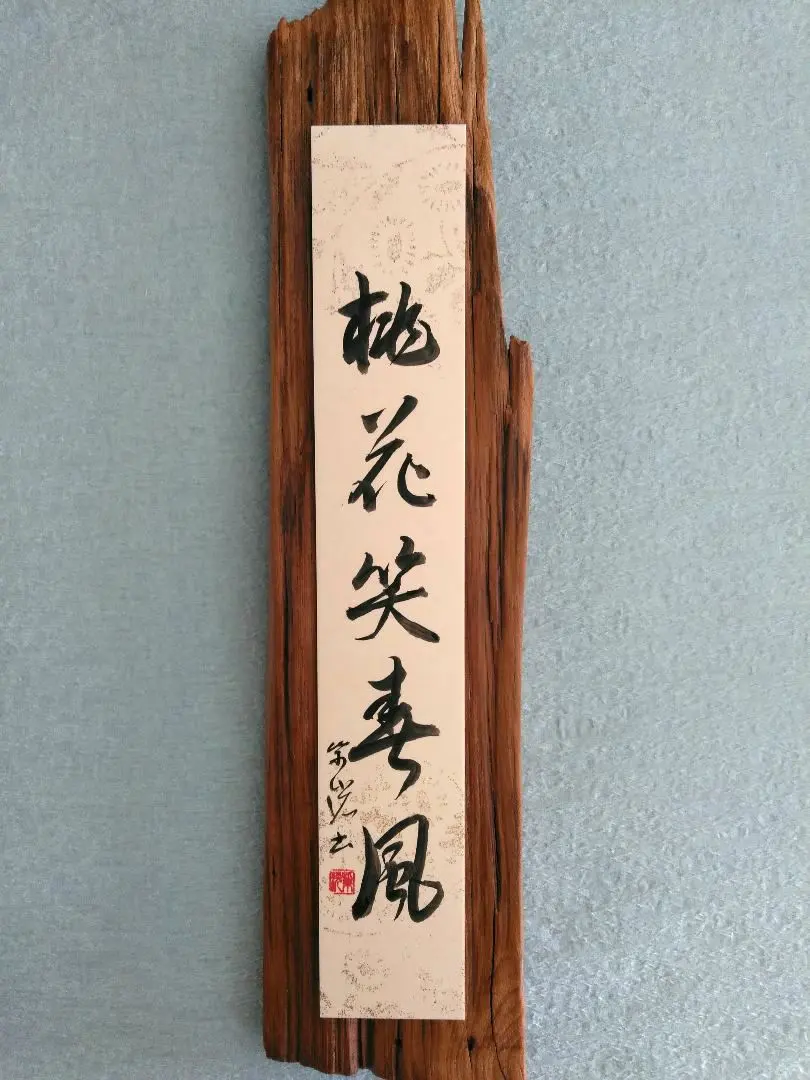 桃花笑春風